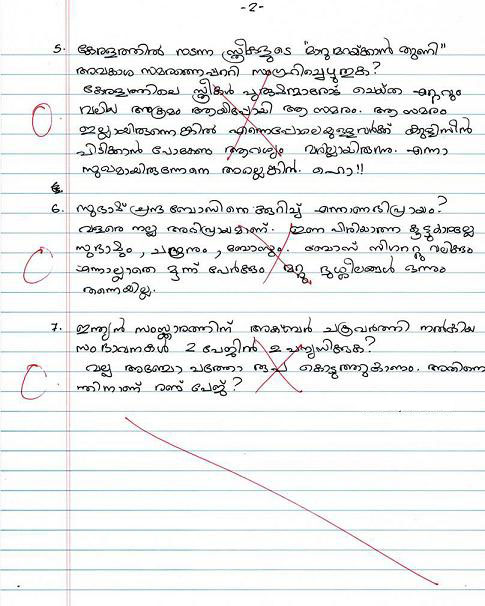 -2-
5. കേരളത്തിൽ നടന്ന സ്ത്രീകളുടെ "മാറുമറയ്ക്കാൻ തുണി"
അവകാശ സമരത്തെപ്പററി സംഗ്രഹിച്ചെഴുതുക?
കേരളത്തിലെ സ്ത്രീകൾ പുരുഷന്മാരോട് ചെയ്ത ഏറ്റവും
വലിയ അക്രമം ആയിപ്പോയി ആ സമരം. ആ സമരം
ഇല്ലായിരുന്നെങ്കിൽ എന്നെപ്പോലെയുള്ളവർക്ക് കുളിസീൻ
പിടിക്കാൻ പോകേണ്ട ആവശ്യം വരില്ലായിരുന്നു. എന്നാ
സുഖമായിരുന്നേനെ അല്ലെങ്കിൽ. ഹൊ!!
6. സുഭാഷ് ചന്ദ്ര ബോസിനെക്കുറിച്ച് എന്താണഭിപ്രായം?
വളരെ നല്ല അഭിപ്രായമാണ്. ഇണ പിരിയാത്ത കൂട്ടുകാരല്ലേ
സുഭാഷും, ചന്ദ്രനും, ബോസും. ബോസ് സിഗററ്റു വലിക്കും
എന്നല്ലാതെ മൂന്ന് പേർക്കും മറ്റു ദുശ്ശീലങ്ങൾ ഒന്നും
തന്നെയില്ല.
7. ഇന്ത്യൻ സംസ്കാരത്തിന് അക്ബർ ചക്രവർത്തി നൽകിയ
സംഭാവനകൾ 2 പേജിൽ ഉപന്യസിക്കുക?
വല്ല അഞ്ചോ പത്തോ രൂപ കൊടുത്തുകാണും. അതിനെ
ന്തിനാണ് രണ്ട് പേജ്?